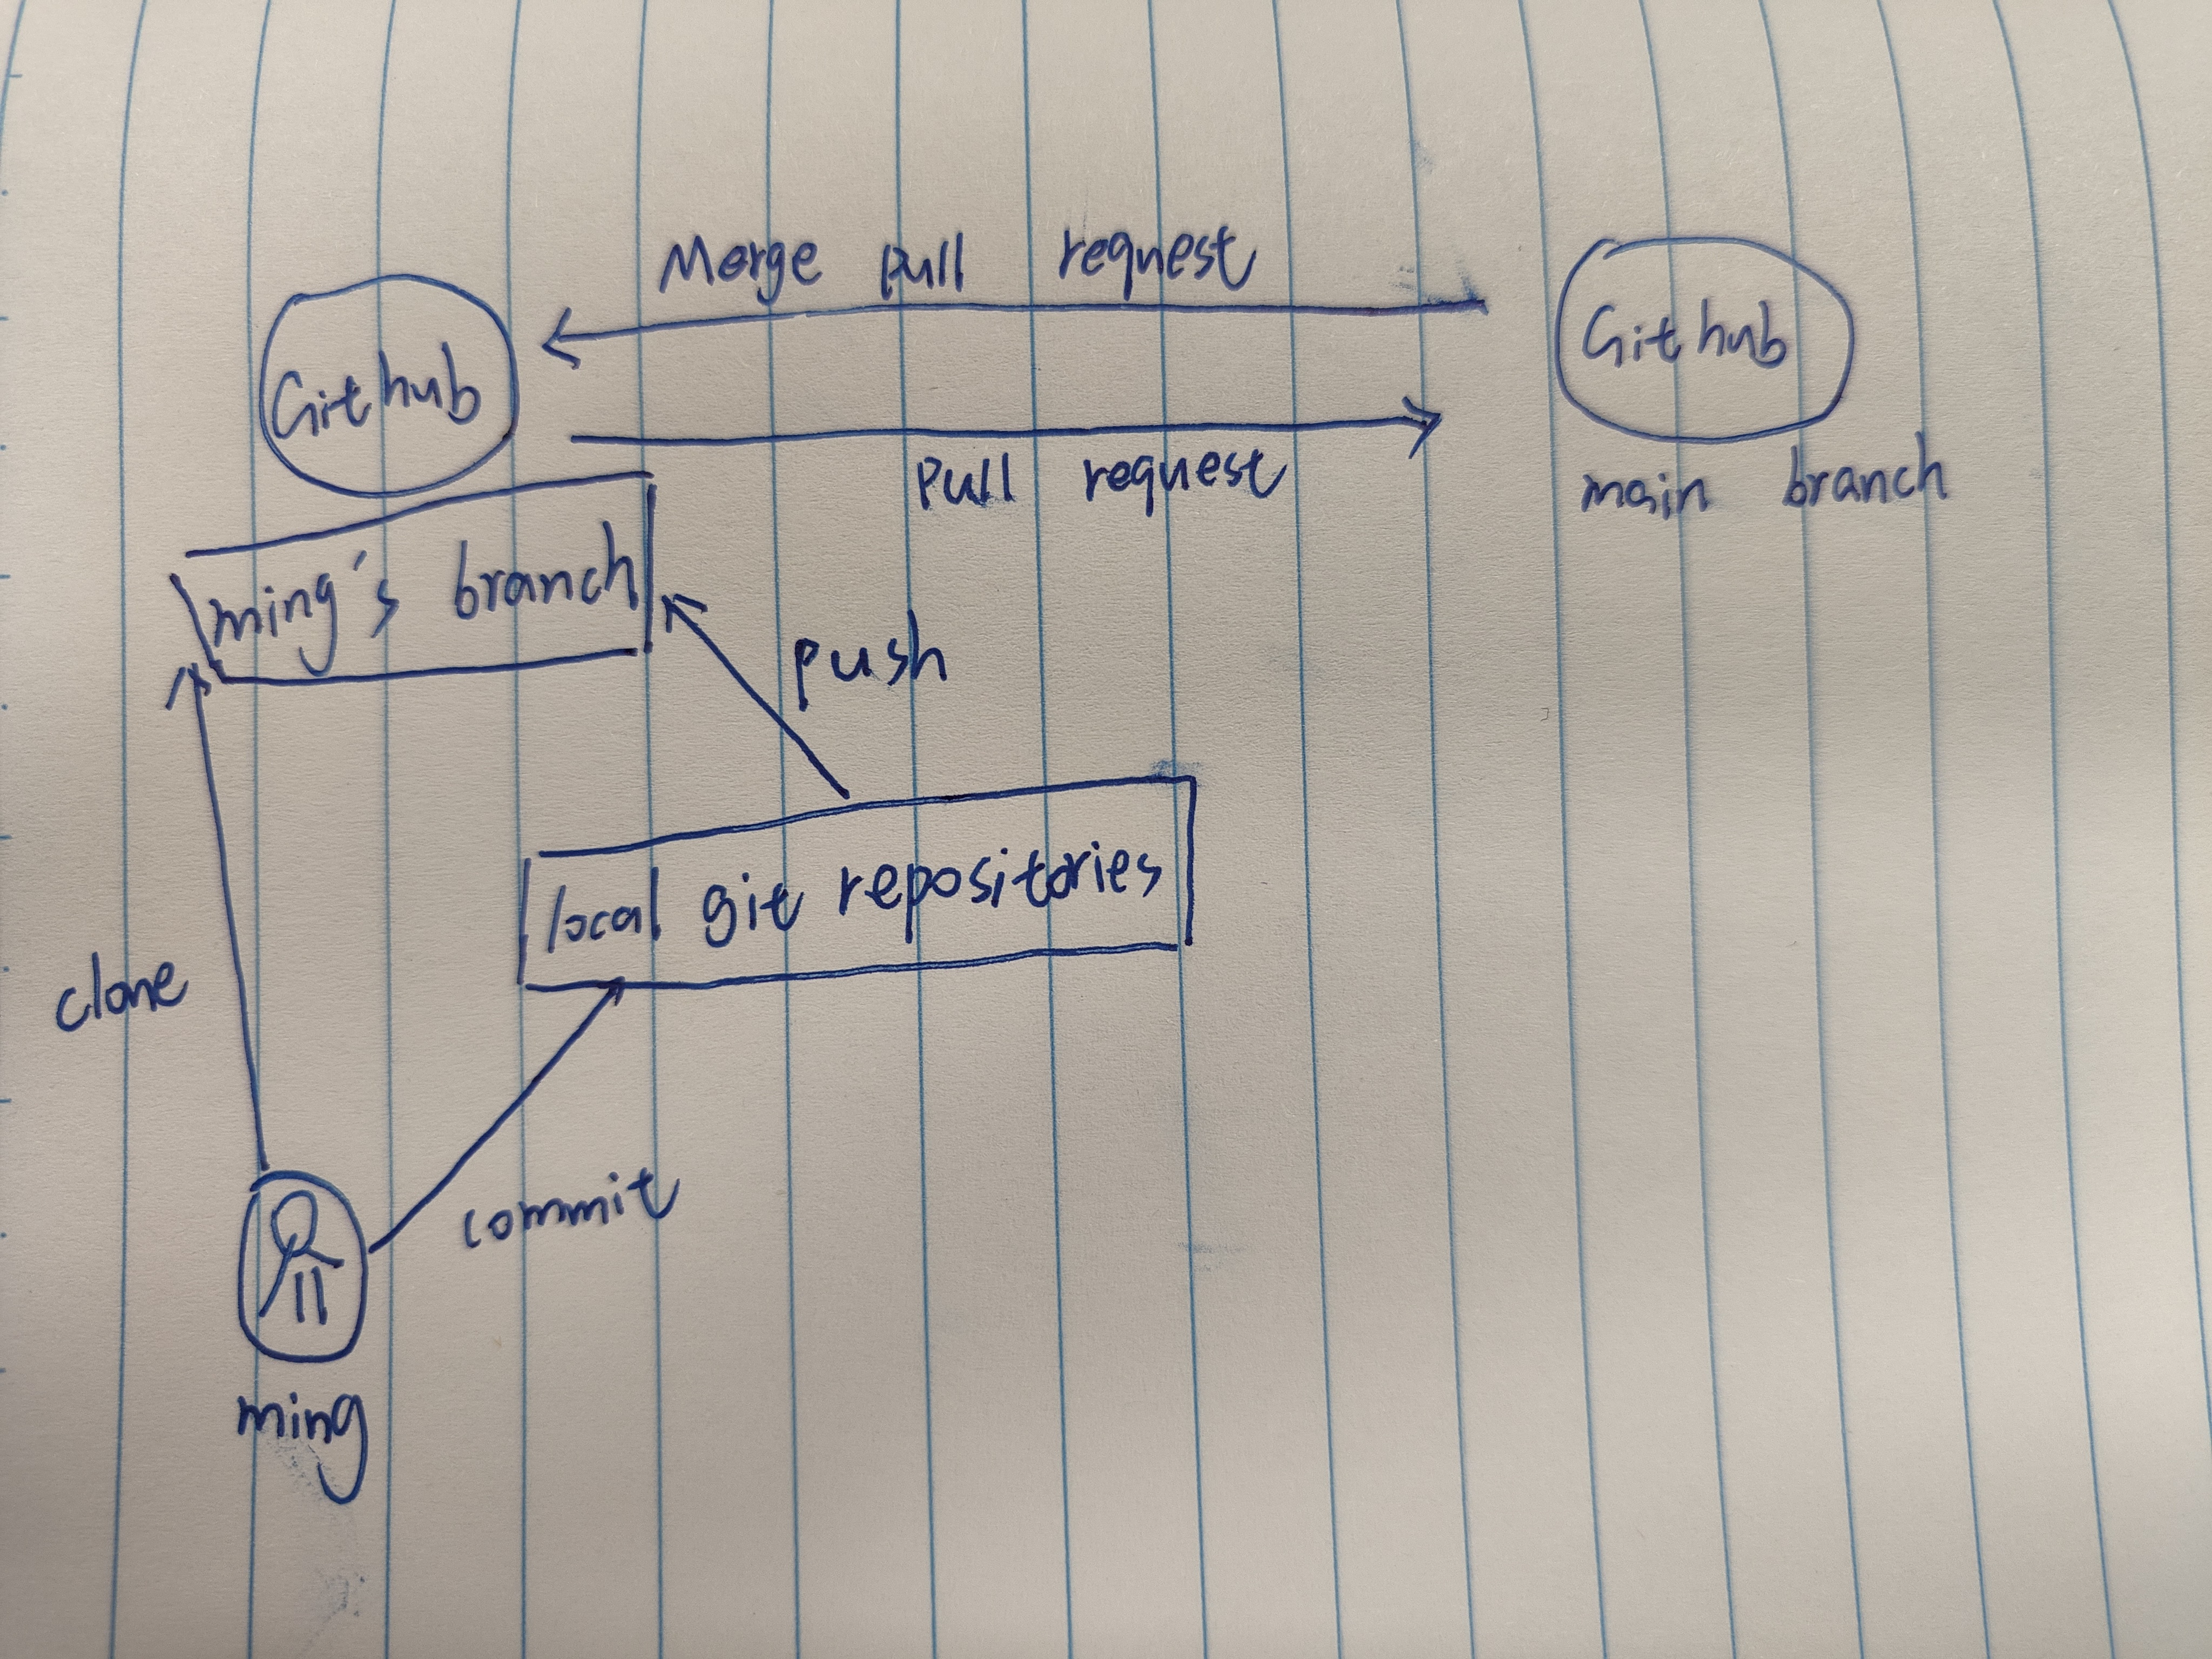 Merge pull request
Github
Github
Pull request
main branch
ming's branch
push
local git repositories
clone
commit
ming